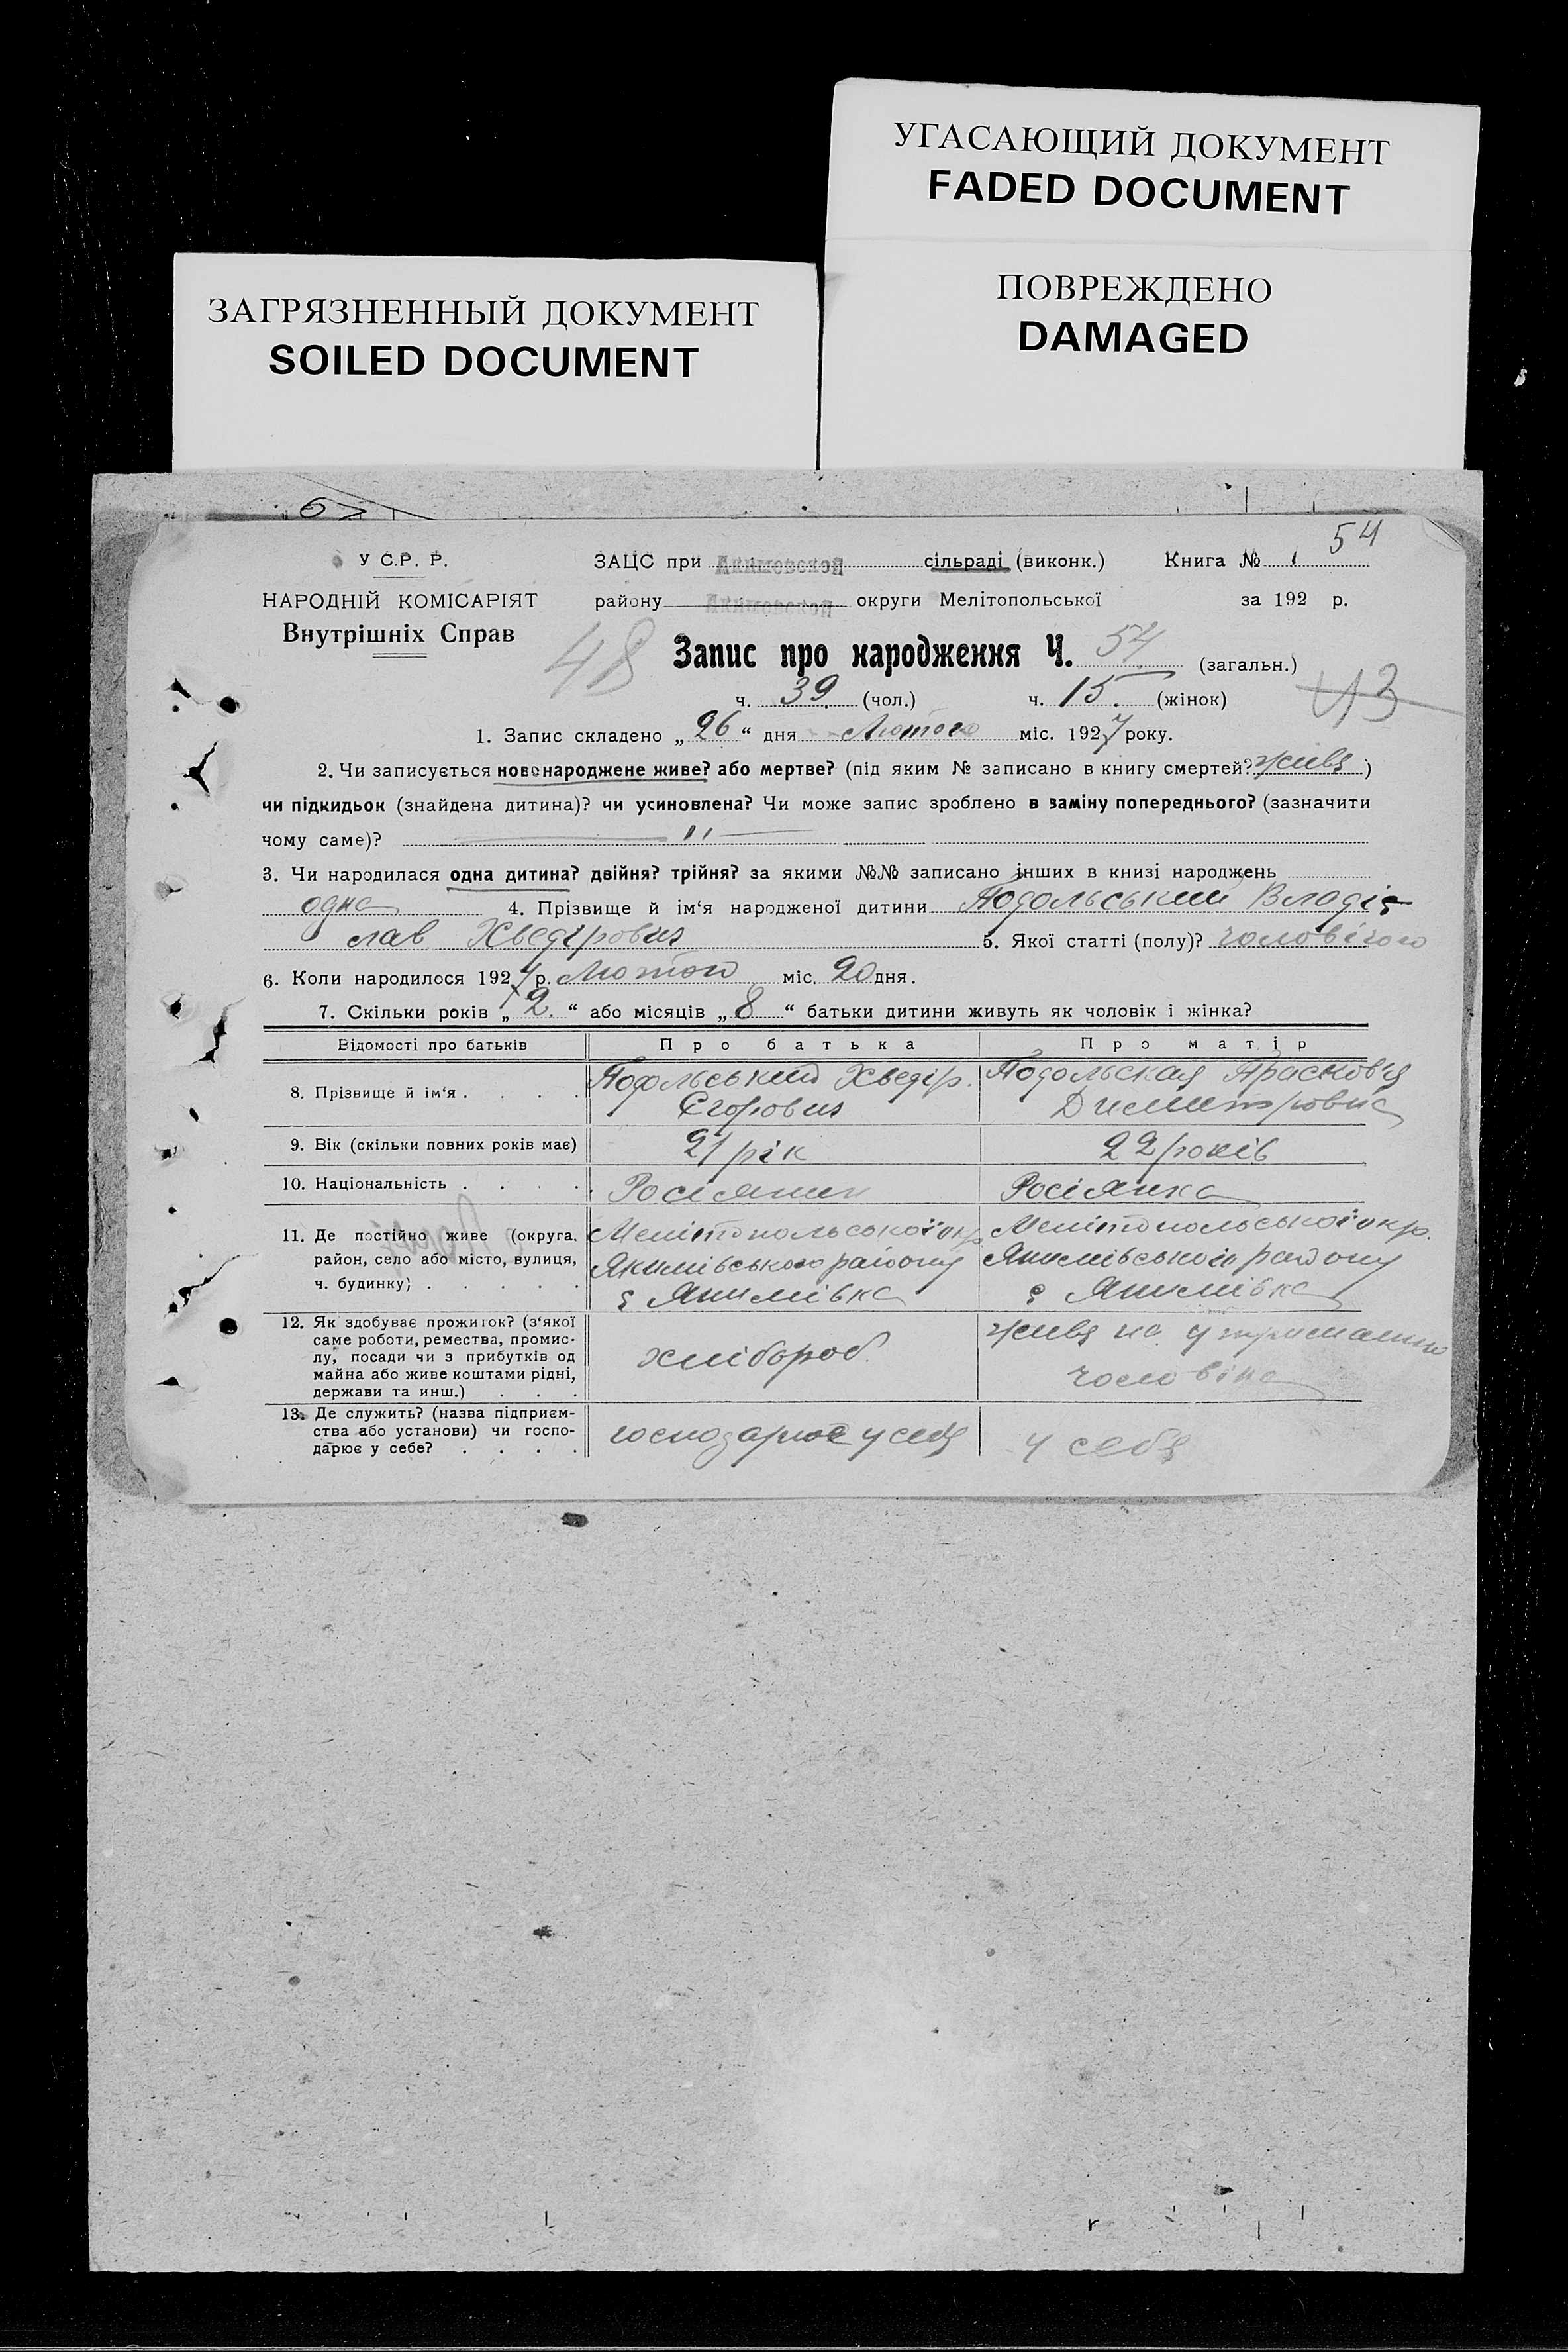 УГАСАЮЩИЙ ДОКУМЕНТ
FADED DOCUMENT
ПОВРЕЖДЕНО
DAMAGED
ЗАГРЯЗНЕННЫЙ ДОКУМЕНТ
SOILED DOCUMENT
54
У С.Р. Р.
НАРОДНІЙ КОМІСАРІЯТ
Внутрішніх Справ
ЗАЦС при Акимовской сільраді (виконк.) Книга № 1
району Акимовской округи Мелітопольської за 192 р.
48
Запис про народження Ч. 54 (загальн.)
ч. 39 (чол.) ч. 15 (жінок)
43
1. Запис складено „ 26 “ дня Лютого міс. 1927 року.
2. Чи записується новонароджене живе? або мертве? (під яким № записано в книгу смертей? живе)
чи підкидьок (знайдена дитина)? чи усиновлена? Чи може запис зроблено в заміну попереднього? (зазначити
чому саме)? — " —
3. Чи народилася одна дитина? двійня? трійня? за якими №№ записано інших в книзі народжень
одна 4. Прізвище й ім‘я народженої дитини Подольський Владіс
лав Хведірович 5. Якої статті (полу)? чоловічого
6. Коли народилося 1927 р. Лютого міс. 20 дня.
7. Скільки років „ 2 “ або місяців „ 8 “ батьки дитини живуть як чоловік і жінка?
Відомості про батьків Про батька Про матір
8. Прізвище й ім‘я . . . . Подольський Хведір Подольская Прасковя
Єгорович Дмитровна
9. Вік (скільки повних років має) 21 рік 22 років
10. Національність . . . . Росіянин Росіянка
11. Де постійно живе (округа, Мелітопольської окр. Мелітопольської окр.
район, село або місто, вулиця, Якимівського району Якимівського району
ч. будинку) . . . . . с Якимівка с Якимівка
12. Як здобуває прожиток? (з‘якої
саме роботи, ремества, промис-
лу, посади чи з прибутків од
майна або живе коштами рідні,
держави та инш.) . . .
хлібороб живе на утриманню
чоловіка
13. Де служить? (назва підприєм-
ства або установи) чи госпо-
дарює у себе? . . . .
господарює у себе у себе